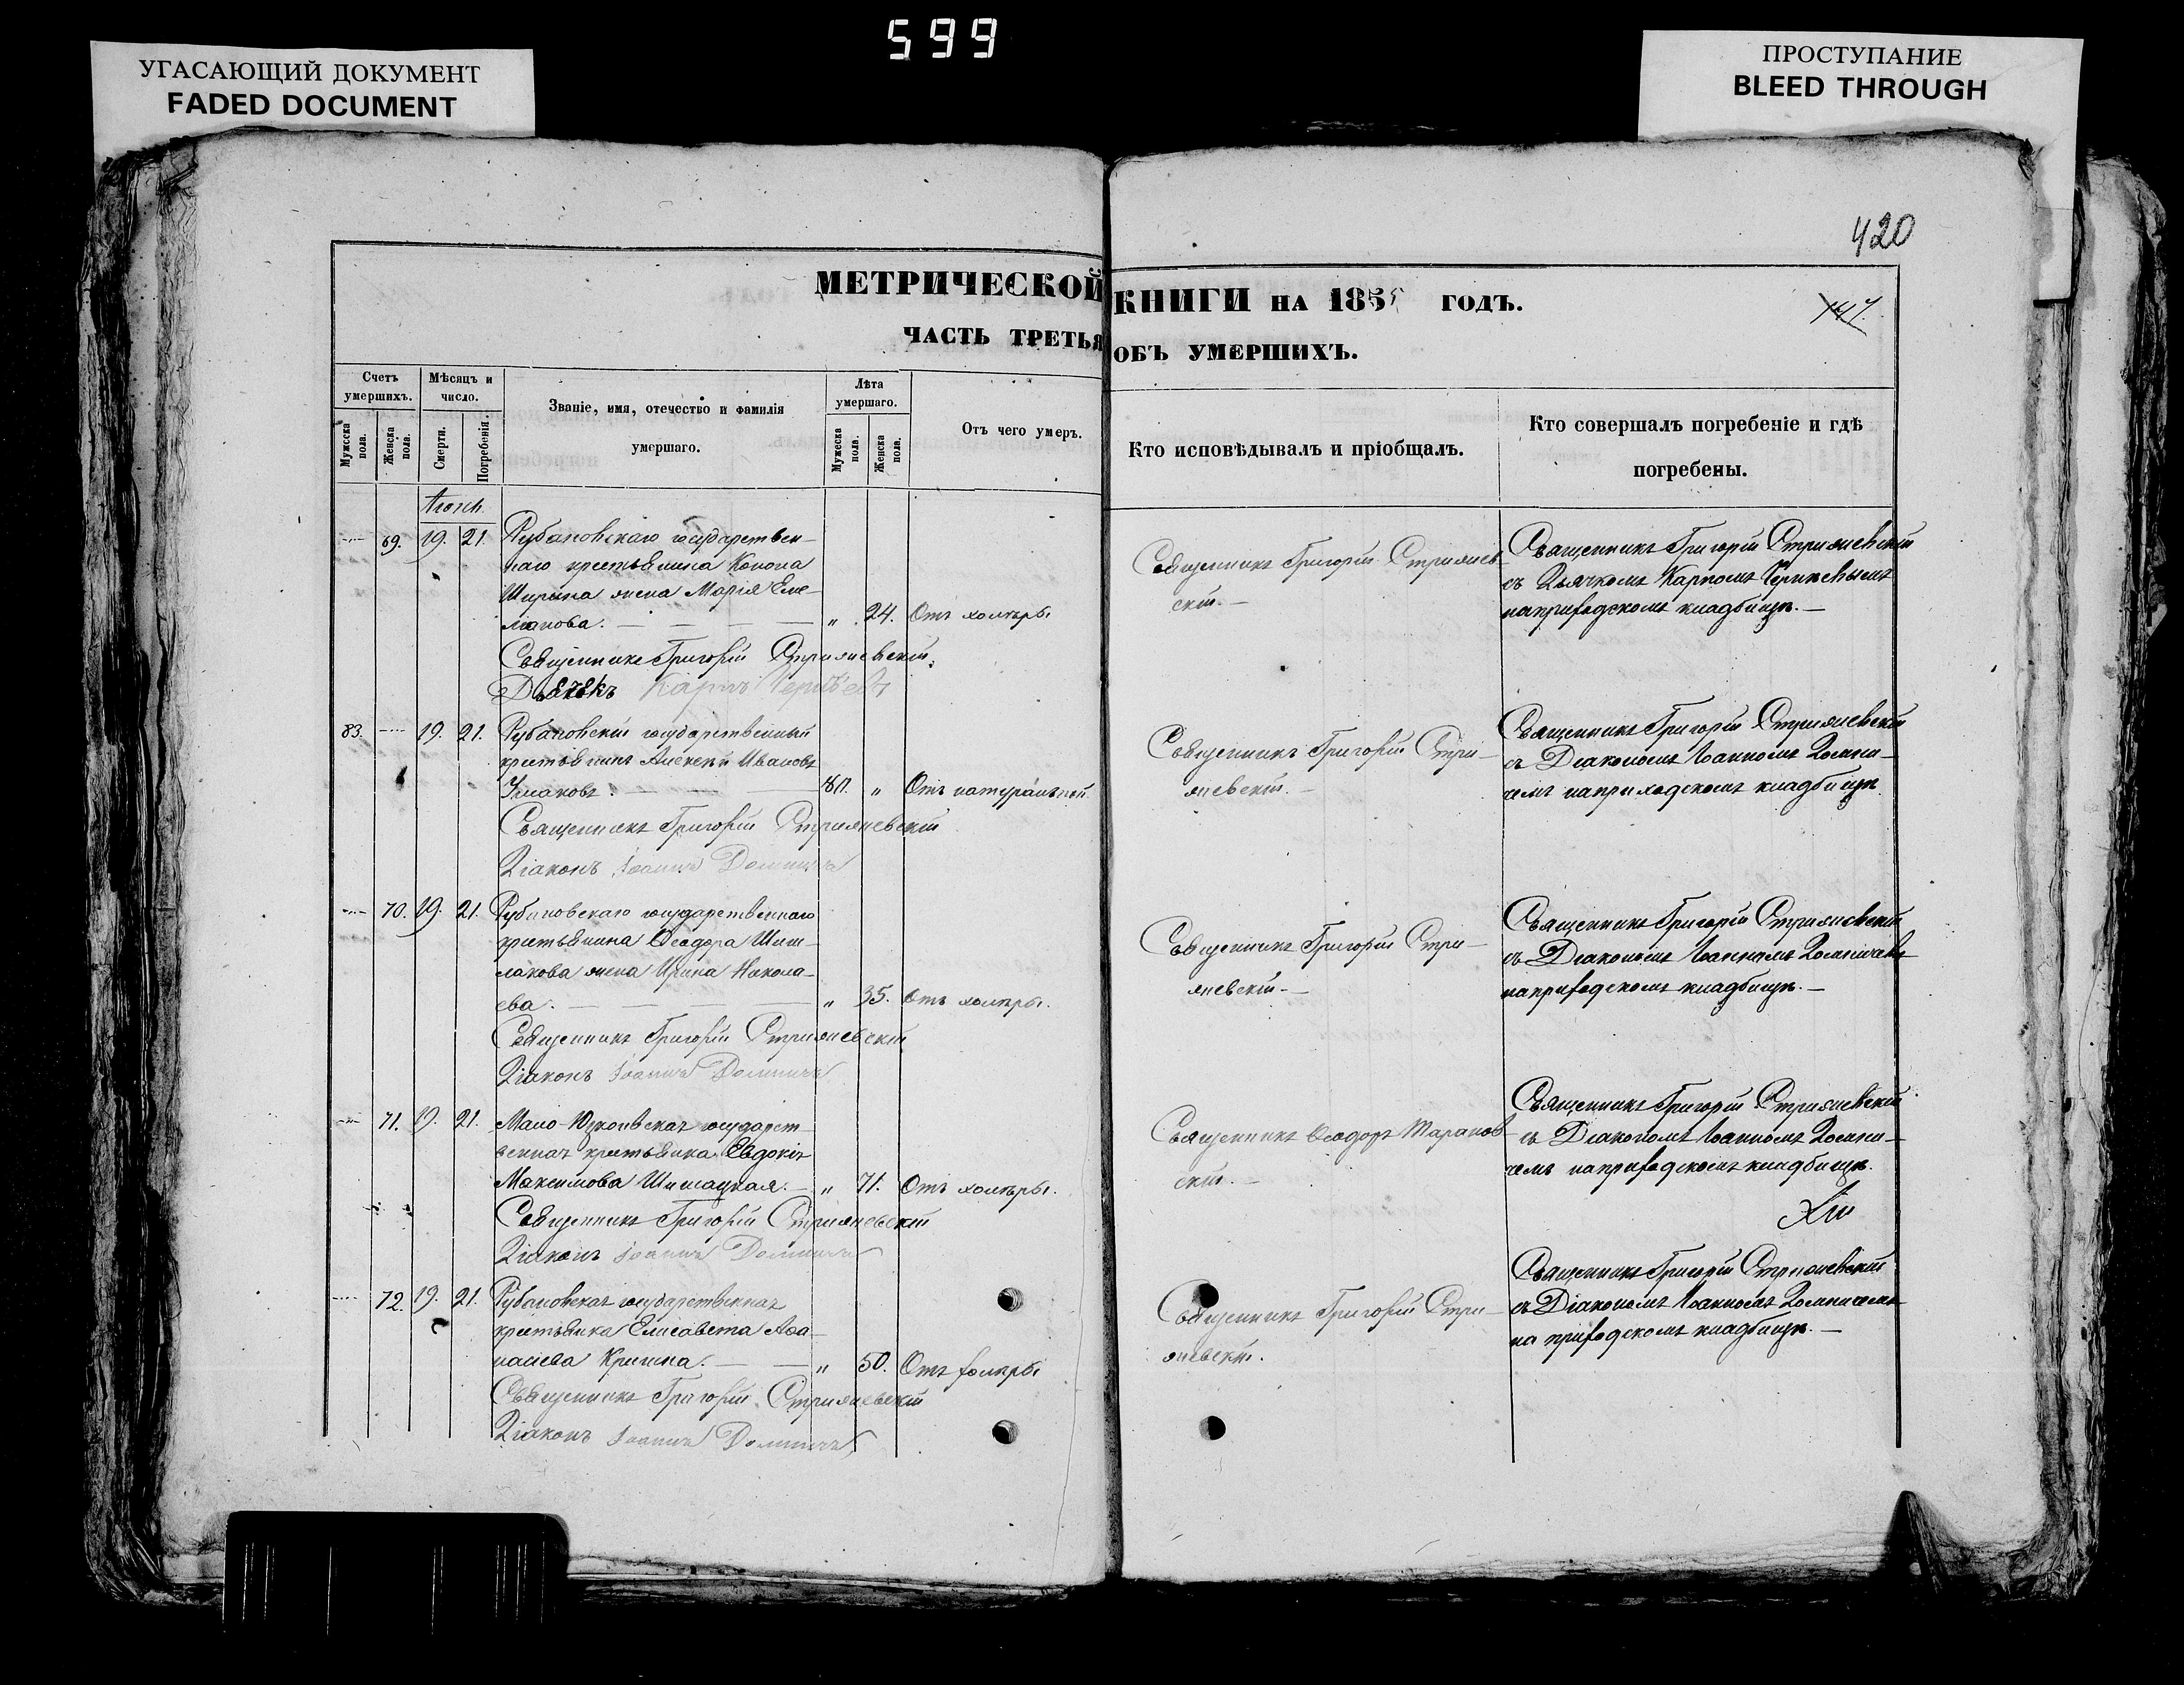 599
УГАСАЮЩИЙ ДОКУМЕНТ
FADED DOCUMENT
ПРОСТУПАНИЕ
BLEED THROUGH
420
МЕТРИЧЕСКОЙ КНИГИ НА 1855 ГОДЪ.
ЧАСТЬ ТРЕТЬЯ ОБЪ УМЕРШИХЪ.
Счетъ умершихъ.
Мужеска пола.
Женска пола.
Мѣсяцъ и число.
Смерти.
Погребенія.
Званіе, имя, отечество и фамилія умершаго.
Лѣта умершаго.
Мужеска пола.
Женска пола.
Отъ чего умеръ.
Кто исповѣдывалъ и пріобщалъ.
Кто совершалъ погребеніе и гдѣ погребены.
69. 19. 21. Рубановскаго государствен-
наго крестьянина Конона
Ширина жена Марія Еме-
лианова. — „ 24. Отъ холѣры
Священникъ Григорій Стрижевскій.
Дьячекъ Карпъ
Священникъ Григорій Стрижев-
скій. —
Священникъ Григорій Стрижевскій
съ Дьячкомъ Карпомъ
на приходскомъ кладбищѣ. —
83. 19. 21. Рубановскій государственный
крестьянинъ Алексѣй Ивановъ
— „ Отъ натуральной
Священникъ Григорій Стрижевскій
Діаконъ Іоаннъ
Священникъ Григорій Стри-
жевскій. —
Священникъ Григорій Стрижевскій
съ Діакономъ Іоанномъ
на приходскомъ кладбищѣ.
70. 19. 21. Рубановскаго государственнаго
крестьянина Ѳеодора Шиш-
лакова жена Ирина Никола-
ева. — „ 35. Отъ холѣры.
Священникъ Григорій Стрижевскій
Діаконъ Іоаннъ
Священникъ Григорій Стри-
жевскій. —
Священникъ Григорій Стрижевскій
съ Діакономъ Іоанномъ
на приходскомъ кладбищѣ. —
71. 19. 21. Мало- государст-
венная крестьянка Евдокія
Максимова — „ 71. Отъ холѣры.
Священникъ Григорій Стрижевскій
Діаконъ Іоаннъ
Священникъ Ѳеодоръ Таранов-
скій. —
Священникъ Григорій Стрижевскій
съ Діакономъ Іоанномъ
на приходскомъ кладбищѣ.
72. 19. 21. Рубановская государственная
крестьянка Елисавета Аѳа-
насіева — „ 50. Отъ холѣры
Священникъ Григорій Стрижевскій
Діаконъ Іоаннъ
Священникъ Григорій Стри-
жевскій.
Священникъ Григорій Стрижевскій
съ Діакономъ Іоанномъ
на приходскомъ кладбищѣ. —